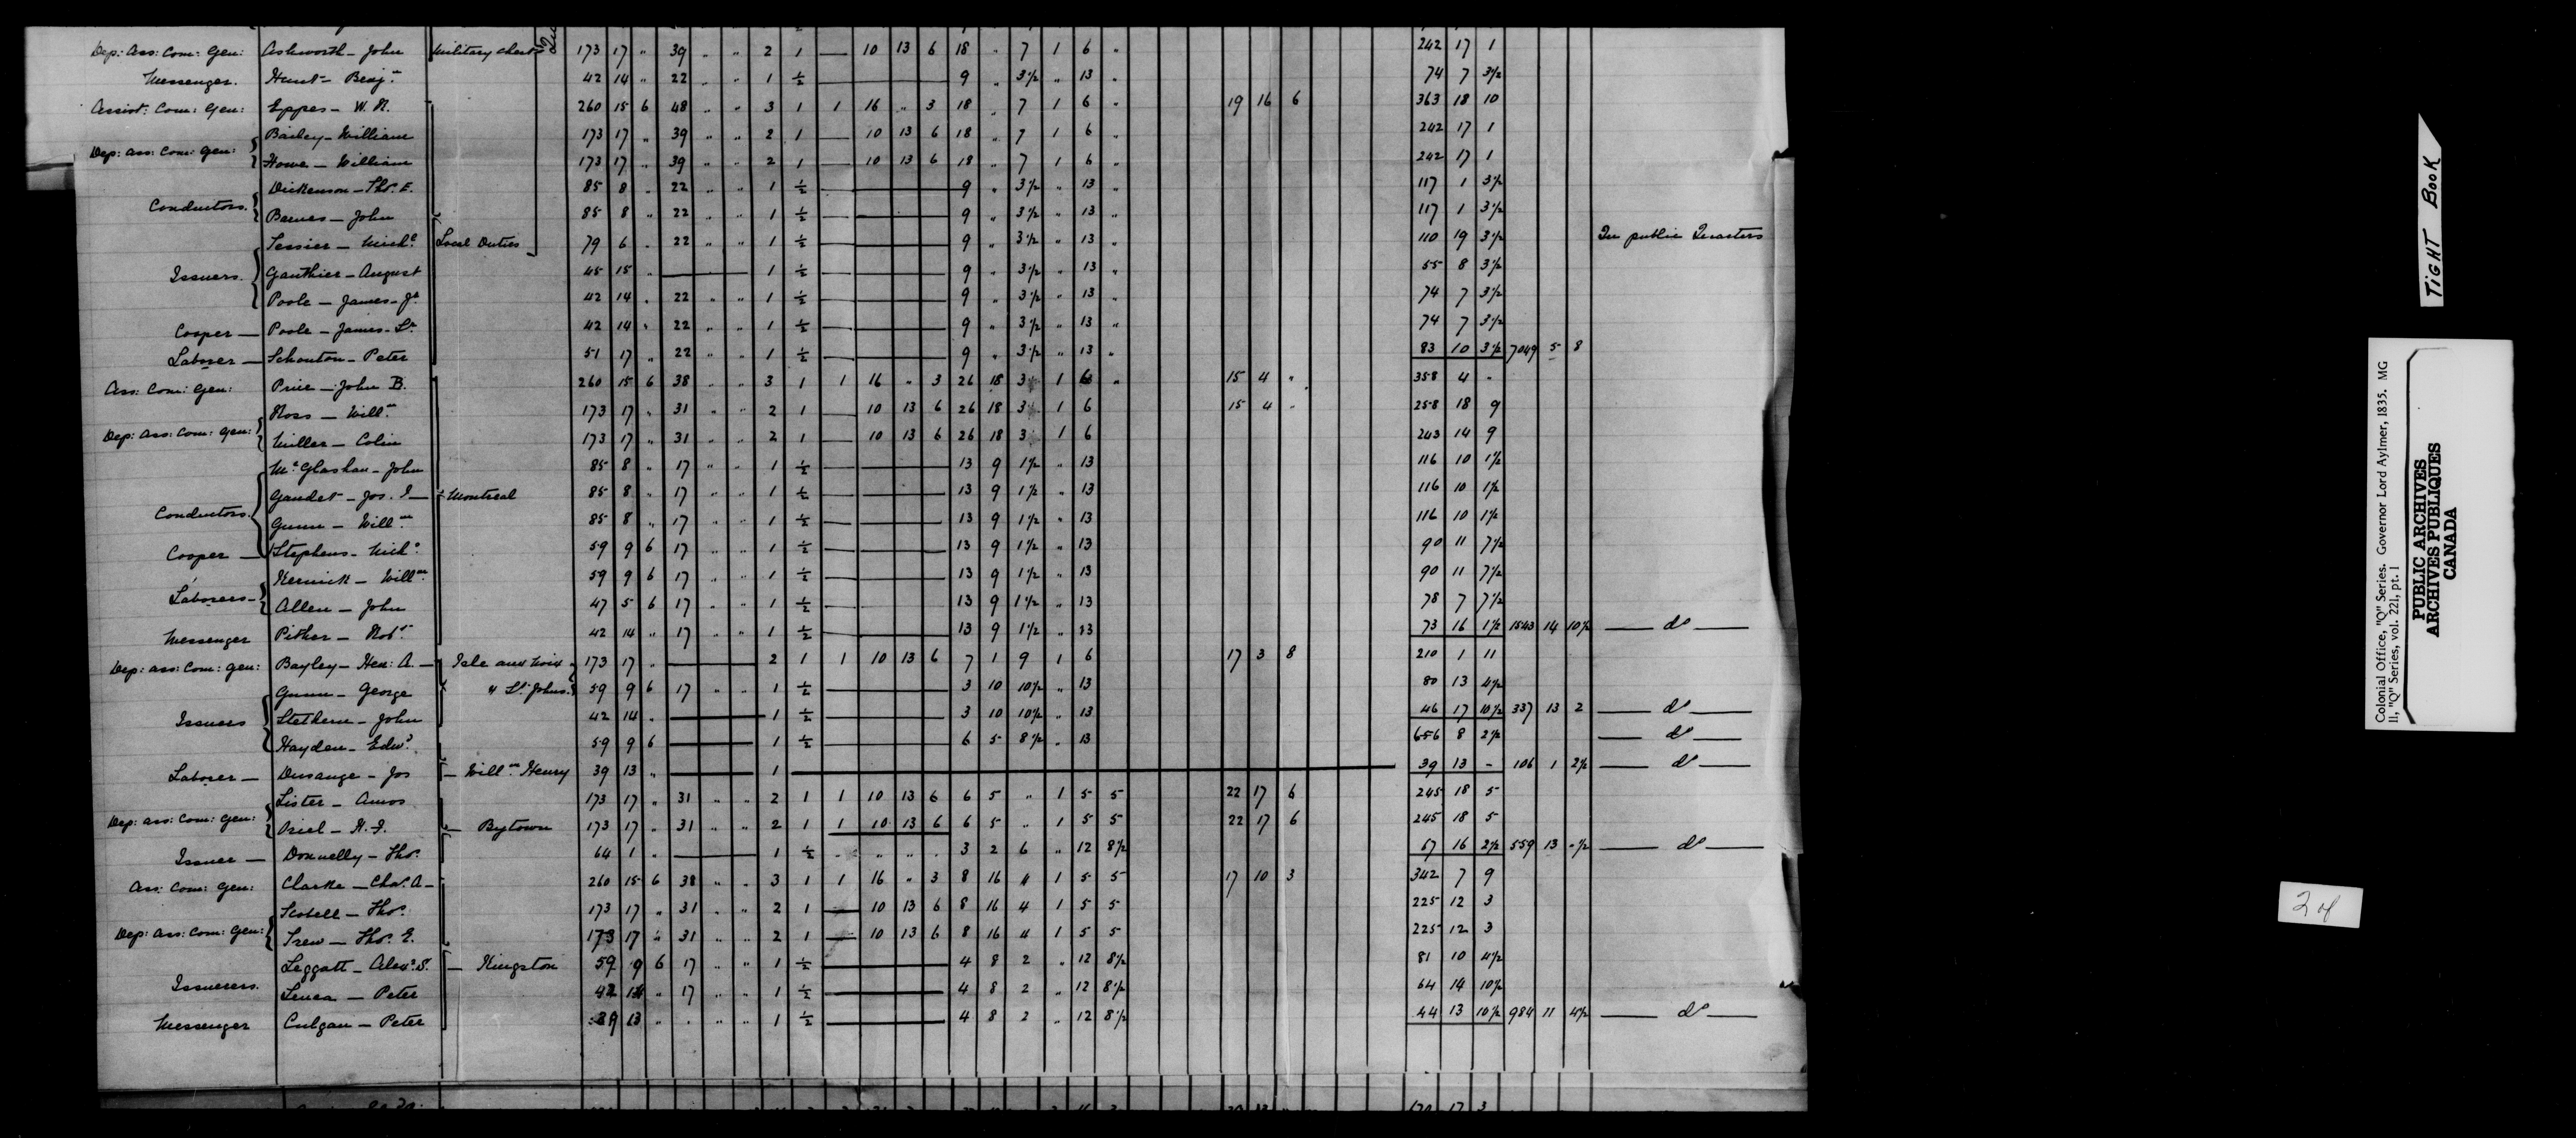 Dep: Ass: Com: Gen: Ashworth - John Military Chest 173 17 " 39 " " 2 1 — 10 13 6 18 " 7 1 6 " 242 17 1
Messenger. Hunt - Benj.n 42 14 " 22 " " 1 ½ — 9 " 3½ " 13 " 74 7 3½
Assist: Com: Gen: Eppes - W. 260 15 6 48 " " 3 1 1 16 " 3 18 " 7 1 6 " 19 16 6 363 18 10
Bailey - William 173 17 " 39 " " 2 1 — 10 13 6 18 " 7 1 6 " 242 17 1
Dep: Ass: Com: Gen: Howe - William 173 17 " 39 " " 2 1 — 10 13 6 18 " 7 1 6 " 242 17 1
Dickenson - Tho.s E. 85 8 " 22 " " 1 ½ — 9 " 3½ " 13 " 117 1 3½
Conductors. Barnes - John 85 8 " 22 " " 1 ½ — 9 " 3½ " 13 " 117 1 3½
Tessier - Mich.l Local Duties 79 6 " 22 " " 1 ½ — 9 " 3½ " 13 " 110 19 3½ In public Quarters
Issuers. Gauthier - August 45 15 " — 1 ½ — 9 " 3½ " 13 " 55 8 3½
Poole - James - J.r 42 14 " 22 " " 1 ½ — 9 " 3½ " 13 " 74 7 3½
Cooper — Poole - James - S.r 42 14 " 22 " " 1 ½ — 9 " 3½ " 13 " 74 7 3½
Laborer — Schouton - Peter 51 17 " 22 " " 1 ½ — 9 " 3½ " 13 " 83 10 3½ 7049 5 8
Ass: Com: Gen: Price - John B. 260 15 6 38 " " 3 1 1 16 " 3 26 18 3 1 6 " 15 4 " 358 4 -
Ross - Will.m 173 17 " 31 " " 2 1 — 10 13 6 26 18 3 1 6 15 4 - 258 18 9
Dep: Ass: Com: Gen: Miller - Colin 173 17 " 31 " " 2 1 — 10 13 6 26 18 3 1 6 243 14 9
Mc Glashan - John 85 8 " 17 " " 1 ½ — 13 9 1½ " 13 116 10 1½
Gaudet - Jos. I — Montreal 85 8 " 17 " " 1 ½ — 13 9 1½ " 13 116 10 1½
Conductors. Gunn - Will.m 85 8 " 17 " " 1 ½ — 13 9 1½ " 13 116 10 1½
Cooper — Stephens - Mich.l 59 9 6 17 " " 1 ½ — 13 9 1½ " 13 90 11 7½
Kernick - Will.m 59 9 6 17 " " 1 ½ — 13 9 1½ " 13 90 11 7½
Laborers - Allen - John 47 5 6 17 " " 1 ½ — 13 9 1½ " 13 78 7 7½
Messenger Pither - Rob.t 42 14 " 17 " " 1 ½ — 13 9 1½ " 13 73 16 1½ 1543 14 10½ — d.o —
Dep: Ass: Com: Gen: Bayley - Hen: A. — Isle aux Noix 173 17 " — 2 1 1 10 13 6 7 1 9 1 6 17 3 8 210 1 11
Gunn - George " St. Johns. 59 9 6 17 " " 1 ½ — 3 10 10½ " 13 80 13 4½
Issuers Stethem - John 42 14 " — 1 ½ — 3 10 10½ " 13 46 17 10½ 337 13 2 — d.o —
Hayden - Edw.d 59 9 6 — 1 ½ — 6 5 8½ " 13 66 8 2½ — d.o —
Laborer — Dusange - Jos — Will.m Henry 39 13 " — 1 — 39 13 - 106 1 2½ — d.o —
Lister - Amos 173 17 " 31 " " 2 1 1 10 13 6 6 5 " 1 5 5 22 17 6 245 18 5
Dep: Ass: Com: Gen: Oriel - — Bytown 173 17 " 31 " " 2 1 1 10 13 6 6 5 " 1 5 5 22 17 6 245 18 5
Issuer — Donnelly - Tho.s 64 1 " — 1 ½ " " " " 3 2 6 " 12 8½ 67 16 2½ 559 13 - ½ — d.o —
Ass: Com: Gen: Clarke - Cha.s A - 260 15 6 38 " " 3 1 1 16 " 3 8 16 4 1 5 5 17 10 3 342 7 9
Scobell - Tho.s 173 17 " 31 " " 2 1 — 10 13 6 8 16 4 1 5 5 225 12 3
Dep: Ass: Com: Gen: Trew - Tho.s E. 173 17 " 31 " " 2 1 — 10 13 6 8 16 4 1 5 5 225 12 3
Leggatt - Alex.r S. — Kingston 59 9 6 17 " " 1 ½ — 4 8 2 " 12 8½ 81 10 4½
Issuerers. Senea - Peter 42 14 " 17 " " 1 ½ — 4 8 2 " 12 8½ 64 14 10½
Messenger Culgan - Peter 39 13 " " " " 1 ½ — 4 8 2 " 12 8½ 44 13 10½ 984 11 4½ — d.o —
TIGHT BOOK
Colonial Office, "Q" Series. Governor Lord Aylmer, 1835. MG
11, "Q" Series, vol. 221, pt. 1
PUBLIC ARCHIVES
ARCHIVES PUBLIQUES
CANADA